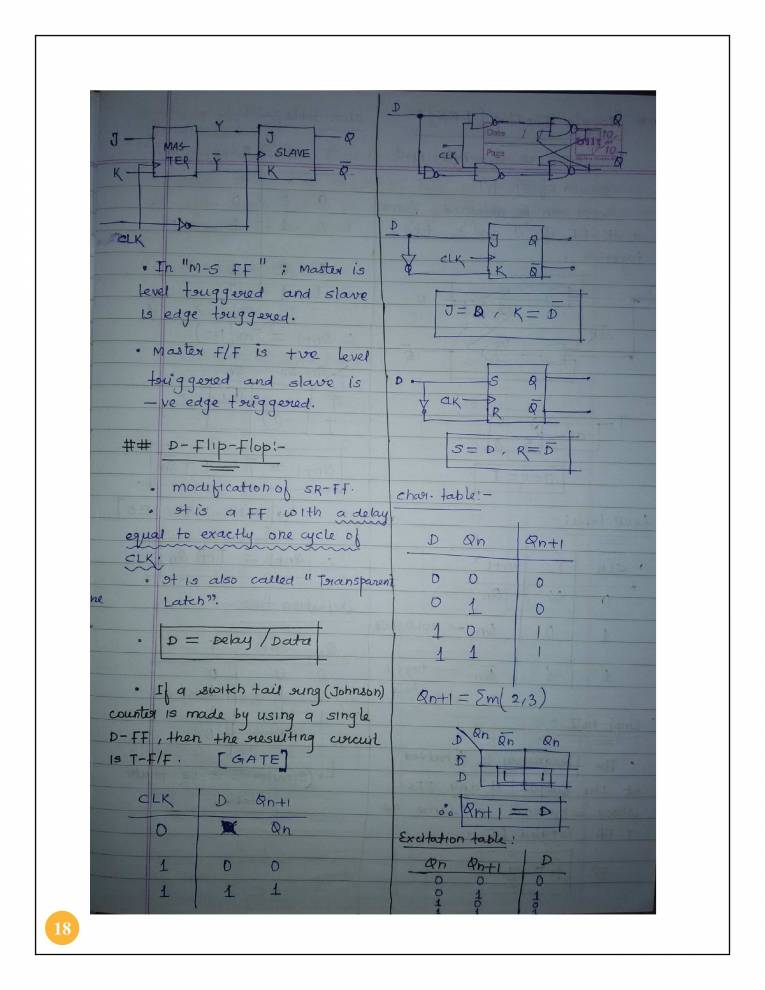 J
K
MAS-
TER
Y
Y̅
J
K
SLAVE
Q
Q̅
CLK
• In "M-S FF" ; Master is
level triggered and slave
is edge triggered.
• Master F/F is +ve level
triggered and slave is
-ve edge triggered.
## D-Flip-Flop:-
• modification of SR-FF.
• It is a FF with a delay
equal to exactly one cycle of
CLK.
• It is also called "Transparent
Latch".
• D = Delay/Data
• If a switch tail ring (Johnson)
counter is made by using a single
D-FF, then the resulting circuit
is T-F/F. [GATE]
CLK D Qn+1
0 Qn
1 0 0
1 1 1
D
CLK
Date
Page
Q
Q̅
D
J Q
CLK
K Q̅
J = D, K = D̅
D
S Q
CLK
R Q̅
S = D, R = D̅
char. table:-
D Qn Qn+1
0 0 0
0 1 0
1 0 1
1 1 1
Qn+1 = Σm(2,3)
D Qn Q̅n Qn
D̅
D 1 1
∴ Qn+1 = D
Excitation table:
Qn Qn+1 D
0 0 0
0 1 1
1 0 0
1 1 1
18